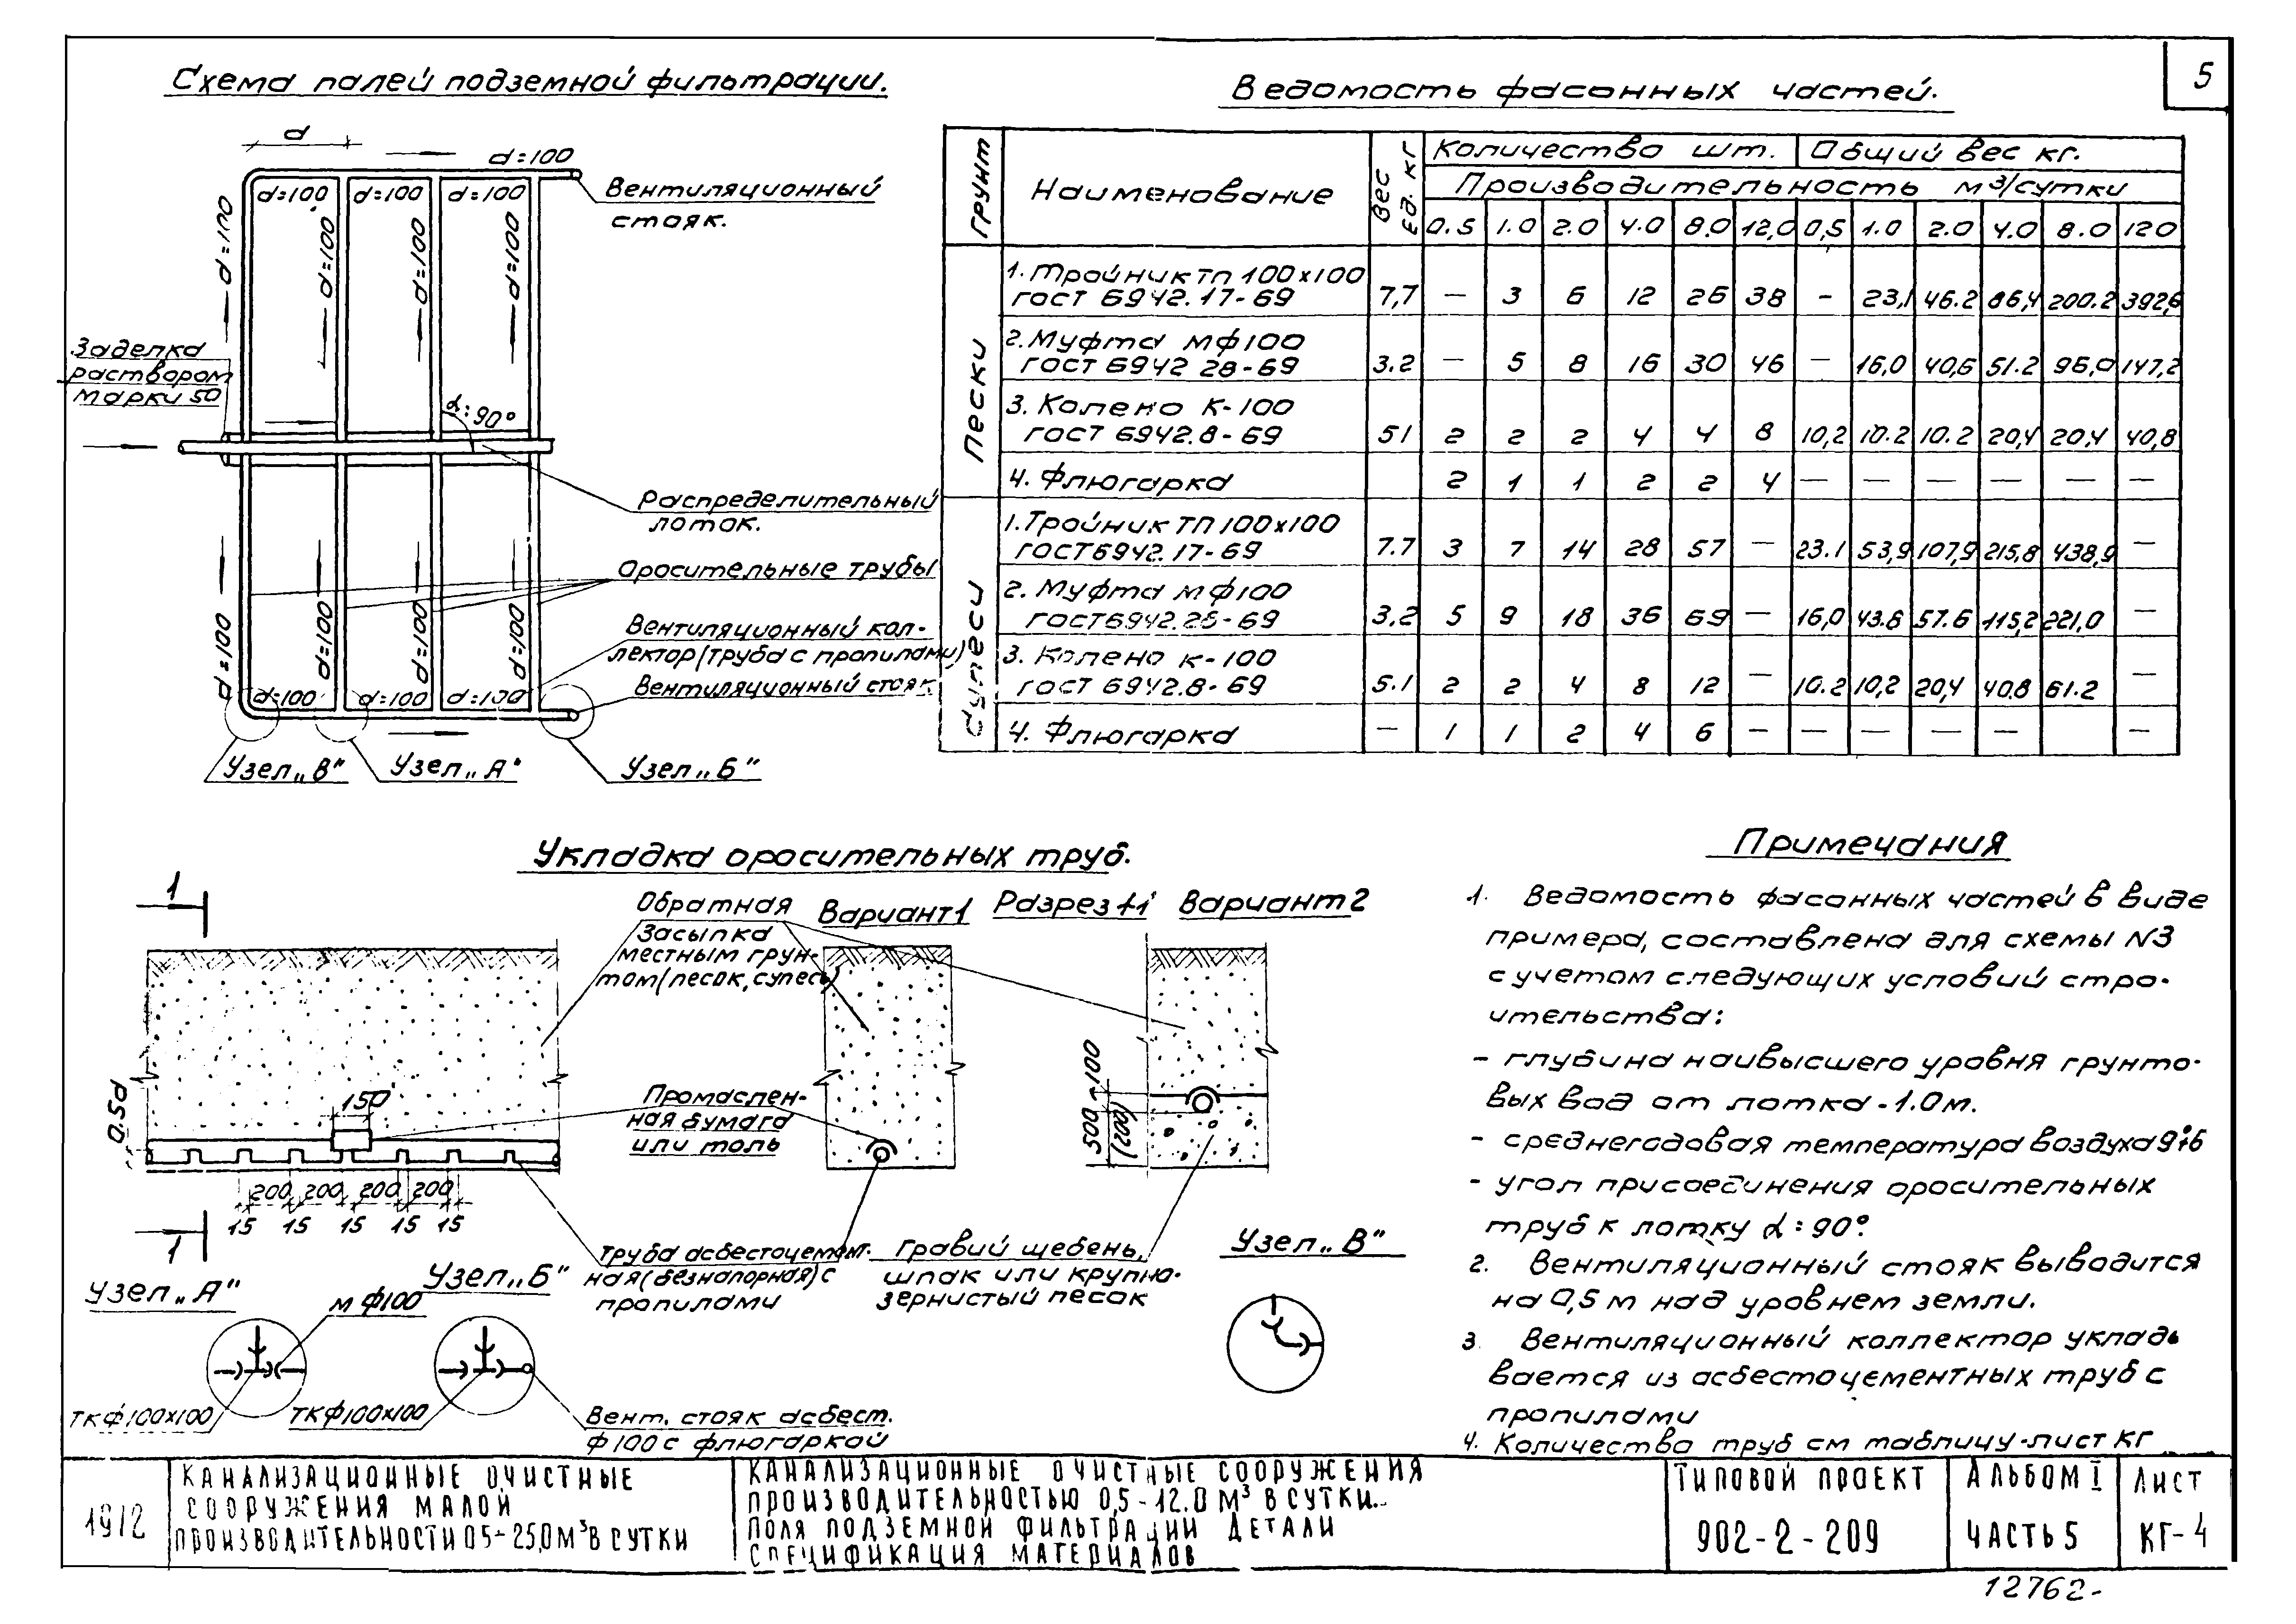 5
Схема полей подземной фильтрации.
d
d=100
d=100 d=100 d=100
Вентиляционный
стояк.
d=100
d=100
d=100
d=100
Заделка
раствором
марки 50
α=90°
Распределительный
лоток.
Оросительные трубы
d=100
d=100
d=100
d=100
Вентиляционный кол-
лектор (труба с пропилами)
Вентиляционный стояк
d=100 d=100 d=100
Узел „В" Узел „А" Узел „Б"
Ведомость фасонных частей.
Грунт Наименование Вес ед. кг Количество шт. Общий вес кг.
Производительность м3/сутки
0.5 1.0 2.0 4.0 8.0 12,0 0,5 1.0 2.0 4.0 8.0 120
Пески
1. Тройник ТП 100х100
ГОСТ 6942.17-69 7,7 — 3 6 12 26 38 - 23,1 46.2 86,4 200.2 392,6
2. Муфта МФ100
ГОСТ 6942 28-69 3.2 — 5 8 16 30 46 — 16,0 40,6 51.2 96,0 147,2
3. Колено К-100
ГОСТ 6942.8-69 51 2 2 2 4 4 8 10,2 10.2 10.2 20,4 20,4 40,8
4. Флюгарка 2 1 1 2 2 4 — — — — — —
Супеси
1. Тройник ТП 100х100
ГОСТ 6942.17-69 7.7 3 7 14 28 57 — 23.1 53,9 107,9 215,8 438,9 —
2. Муфта МФ100
ГОСТ 6942.28-69 3,2 5 9 18 36 69 — 16,0 43.8 57.6 115,2 221,0 —
3. Колено К-100
ГОСТ 6942.8-69 5.1 2 2 4 8 12 — 10.2 10,2 20,4 40.8 61.2 —
4. Флюгарка — 1 1 2 4 6 — — — — — —
Укладка оросительных труб.
1
Обратная
засыпка
местным грун-
том (песок, супесь)
Вариант 1 Разрез 1-1 Вариант 2
0.5d
150
Промаслен-
ная бумага
или толь
~100
500
(200)
200 200 200 200
15 15 15 15 15
1
Труба асбестоцемент-
ная (безнапорная) с
пропилами
Гравий щебень,
шлак или крупно-
зернистый песок
Узел „В"
Узел „А"
Узел „Б"
мФ100
ТКФ100х100
ТКФ100х100
Вент. стояк асбест.
Ф100 с флюгаркой
Примечания
1. Ведомость фасонных частей в виде
примера, составлена для схемы N3
с учетом следующих условий стро-
ительства:
- глубина наивысшего уровня грунто-
вых вод от лотка - 1.0м.
- среднегодовая температура воздуха
- угол присоединения оросительных
труб к лотку α=90°
2. Вентиляционный стояк выводится
на 0,5 м над уровнем земли.
3. Вентиляционный коллектор уклады
вается из асбестоцементных труб с
пропилами
4. Количество труб см таблицу-лист КГ
1972
Канализационные очистные
сооружения малой
производительности 0.5-25,0 м3 в сутки
Канализационные очистные сооружения
производительностью 0,5-12.0 м3 в сутки.
Поля подземной фильтрации Детали
Спецификация материалов
Типовой проект
902-2-209
Альбом I
Часть 5
Лист
КГ-4
12762-